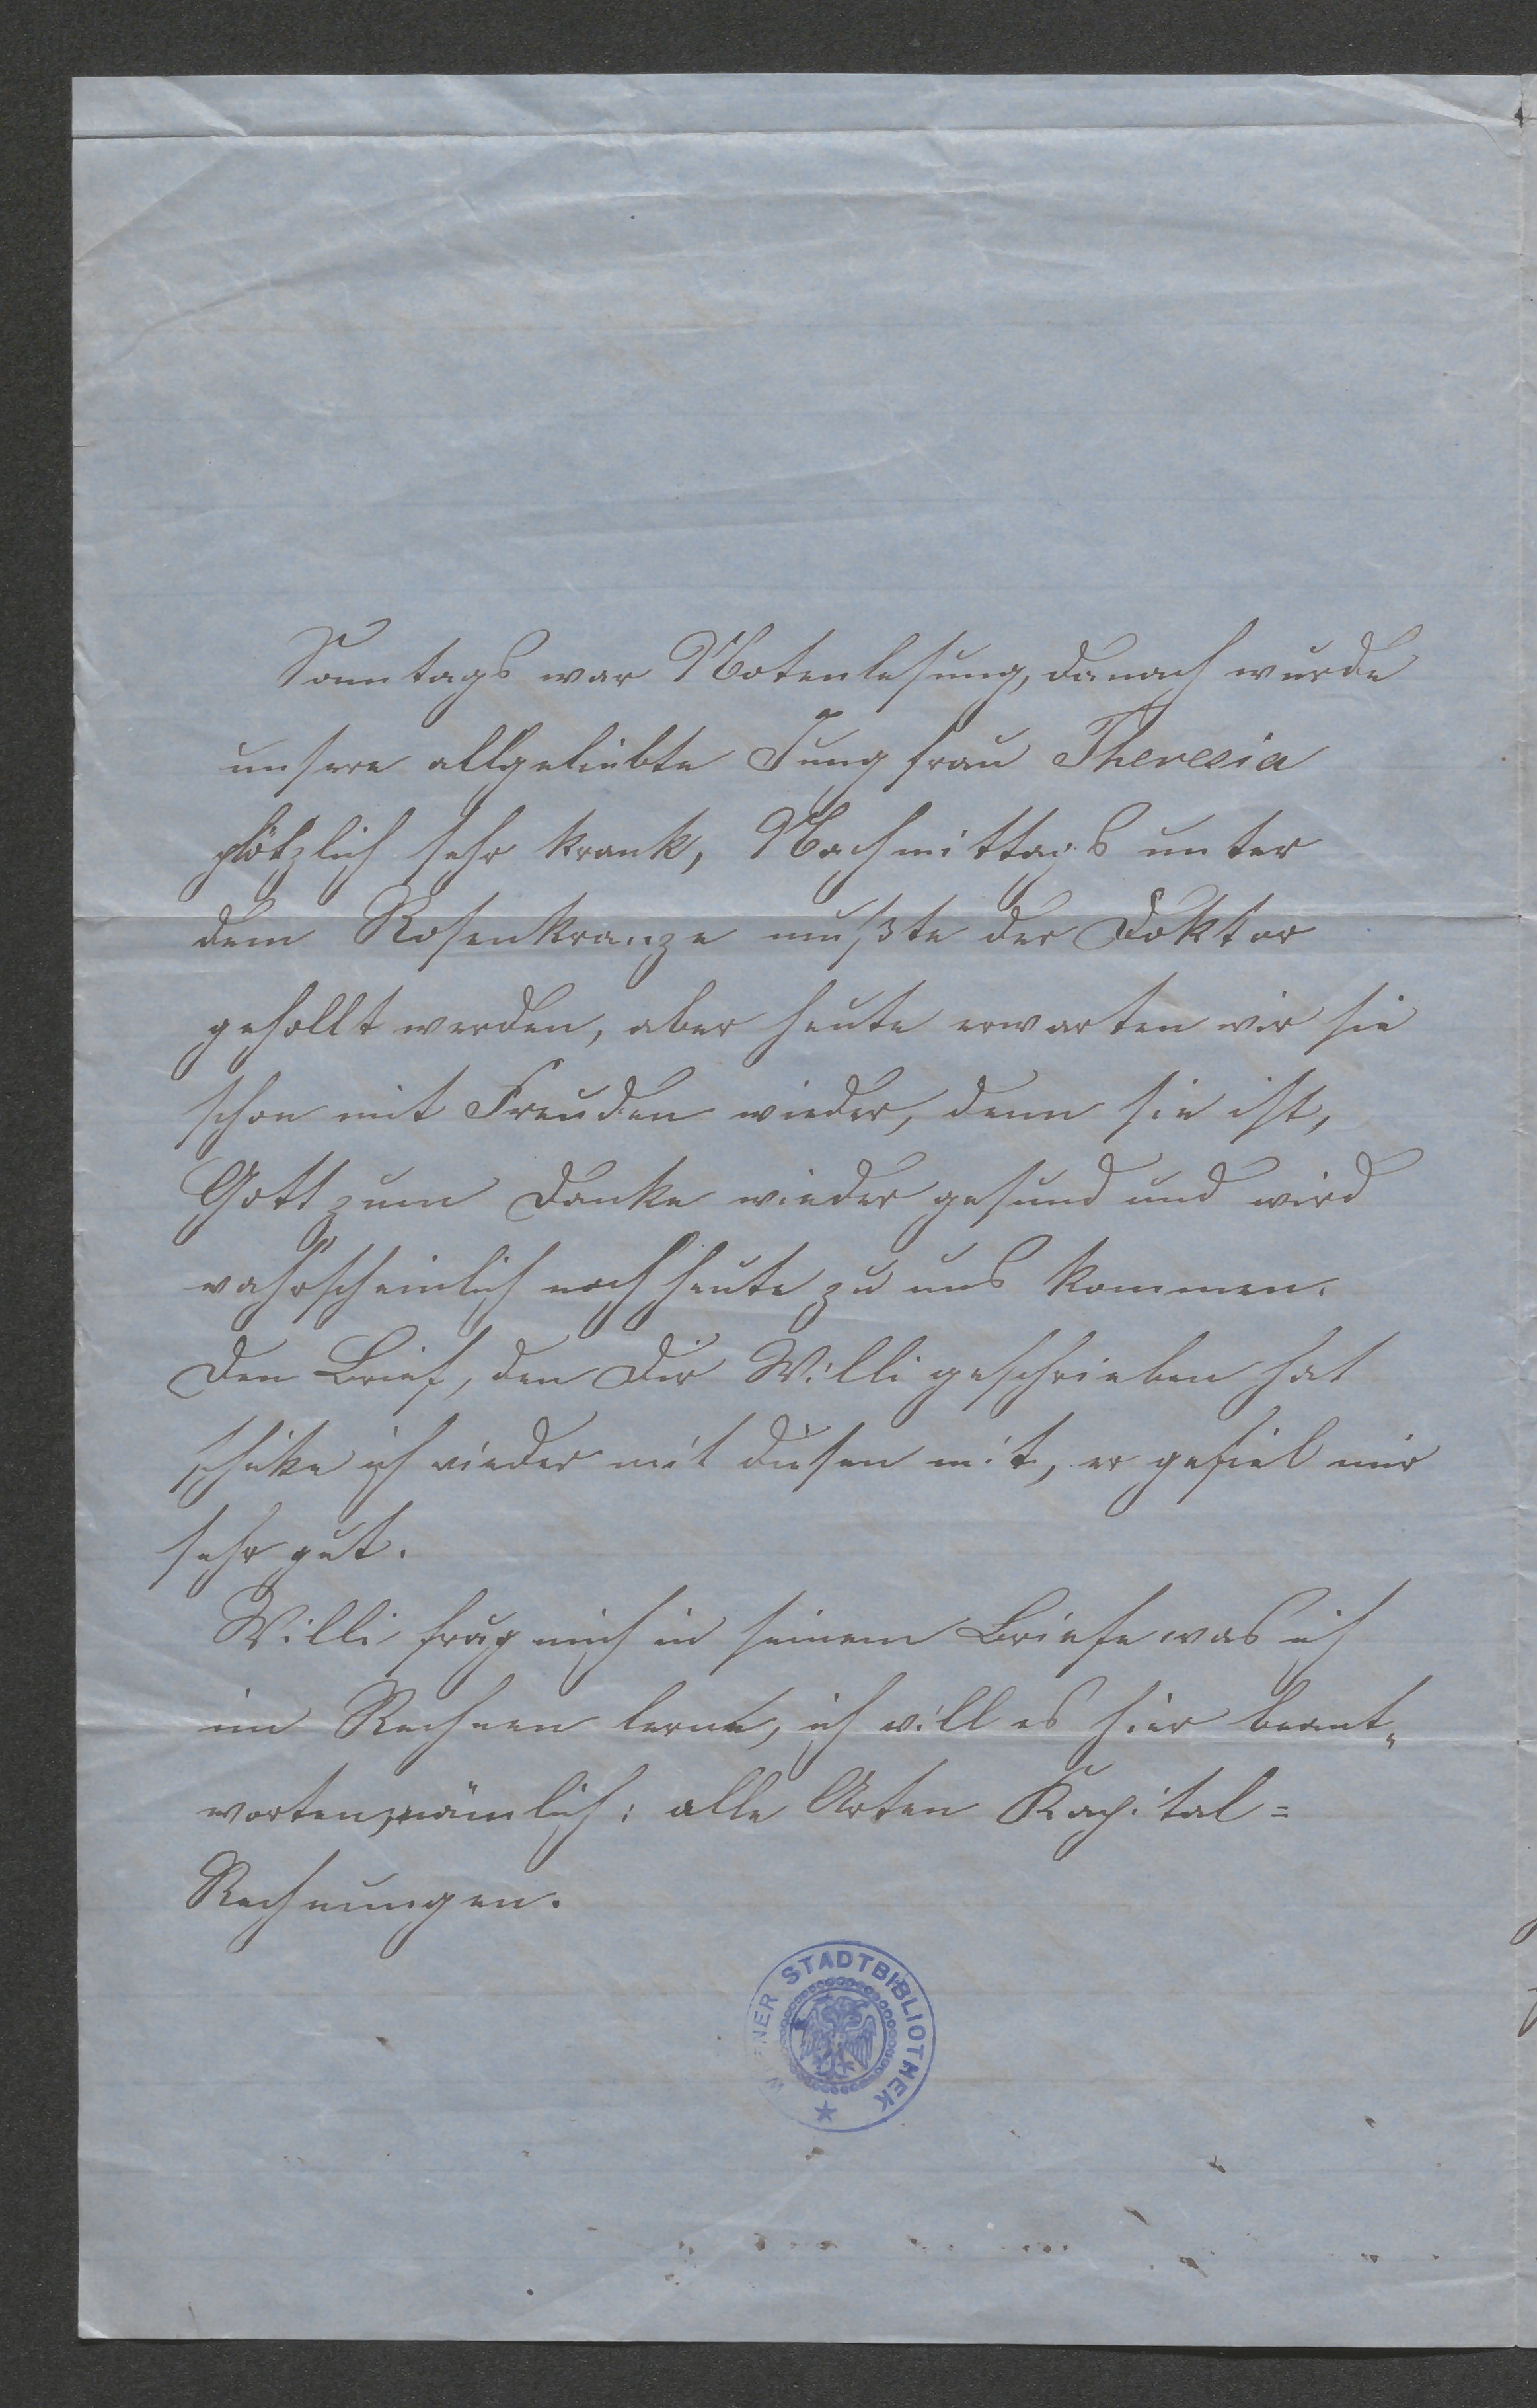 Sonntags war Notenlesung, danach wurde
unsere allgeliebte Jungfrau Theresia
plötzlich sehr krank, Nachmittags unter
dem Rosenkranze mußte der Doktor
gehollt werden, aber heute erwarten wir sie
schon mit Freuden wieder, denn sie ist,
Gott zum Danke wieder gesund und wird
wahrscheinlich noch heute zu uns kommen.
Den Brief, den Dir Willi geschrieben hat
schike ich wieder mit diesen mit, er gefiel mir
sehr gut.
Willi frug mich in seinem Briefe was ich
im Rechnen lerne, ich will es hier beant„
worten, nämlich: alle Arten Kapital=
Rechnungen.
WIENER STADTBIBLIOTHEK